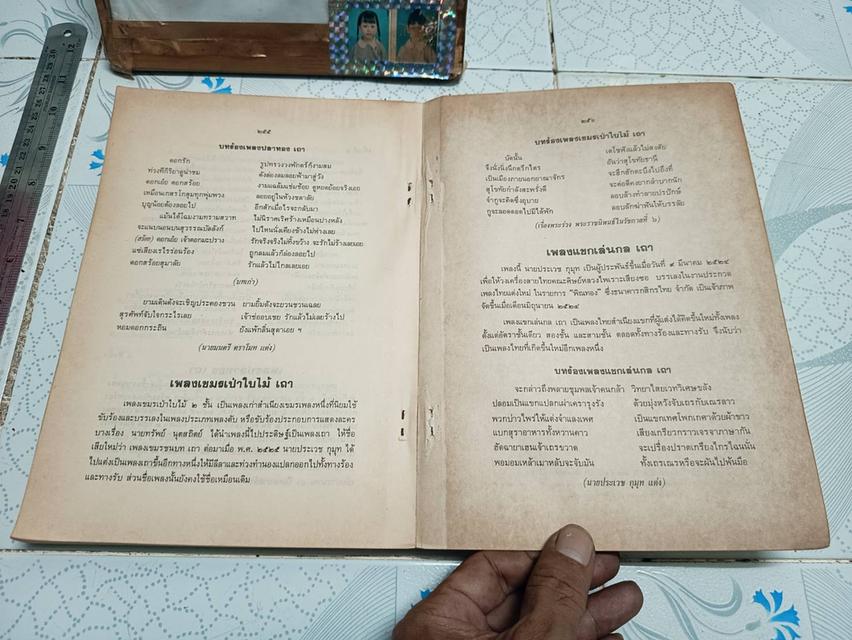 ๒๕๕
บทร้องเพลงปลาทอง เถา
ดอกรัก รูปทรวงวงพักตร์ก็งามสม
ท่วงทีกิริยาดูน่าชม ดังล่องลมลอยฟ้ามาสู่วัง
ดอกเอ๋ย ดอกสร้อย งามแฉล้มแช่มช้อย ดูหยดย้อยจริงเอย
เหมือนเกสรโกสุมทุกพุ่มพวง ลอยอยู่ในห้วงชลาลัย
บุญน้อยต้องลอยไป อีกสักเมื่อไรจะกลับมา
แม้นได้โฉมงามทรามสวาท ไม่นิราศเริศร้างเหมือนปางหลัง
จะแนบนอนบนสุวรรณบัลลังก์ ไปไหนนั่งเคียงข้างไม่ห่างเลย
(สร้อย) ดอกเอ๋ย เจ้าดอกมะปราง รักจริงจริงไม่ทิ้งขว้าง จะรักไม่ร้างเลยเอย
แช่เสียงเรไรร่อนร้อง ถูกลมแล้วก็ล่องลอยไป
ดอกสร้อยสุมาลัย รักแล้วไม่ไกลเลยเอย
(บทเก่า)
ยามเดินดังจะเชิญประคองชวน ยามยิ้มดังจะยวนชวนเฉลย
สุรศัพท์จับใจกระไรเลย เจ้าช่อบบเชย รักแล้วไม่เลยร้างไป
หอมดอกกระถิน ยังแพ้กลิ่นสุดาเอย ฯ
(นายมนตรี ตราโมท แต่ง)
เพลงเขมรเป่าใบไม้ เถา
เพลงเขมรเป่าใบไม้ ๒ ชั้น เป็นเพลงเก่าสำเนียงเขมรเพลงหนึ่งที่นิยมใช้
ขับร้องและบรรเลงในเพลงประเภทเพลงตับ หรือขับร้องประกอบการแสดงละคร
บางเรื่อง นายทรัพย์ นุตสถิตย์ ได้นำเพลงนี้ไปประดิษฐ์เป็นเพลงเถา ให้ชื่อ
เสียใหม่ว่า เพลงเขมรชนบท เถา ต่อมาเมื่อ พ.ศ. ๒๕๒๕ นายประเวช กุมุท ได้
ไปแต่งเป็นเพลงเถาขึ้นอีกทางหนึ่งให้มีลีลาและท่วงทำนองแปลกออกไปทั้งทางร้อง
และทางรับ ส่วนชื่อเพลงนั้นยังคงใช้ชื่อเหมือนเดิม
๒๕๖
บทร้องเพลงเขมรเป่าใบไม้ เถา
บัดนั้น เดโชฟังแล้วไม่สงสัย
จึงนั่งนิ่งนึกตรึกไตร อันว่าสุโขทัยธานี
เป็นเมืองภายนอกอาณาจักร จะฮึกฮักทะนึงไปถึงที่
สุโขทัยกำลังสะพรั่งดี จะต่อตีคงยากลำบากนัก
จำกูจะคิดซึ่งอุบาย ลอบล้างทำลายปรปักษ์
กูจะลอดลอดไปมิให้พัก ลอบลักฆ่าฟันให้บรรลัย
(เรื่องพระร่วง พระราชนิพนธ์ในรัชกาลที่ ๖)
เพลงแขกเล่นกล เถา
เพลงนี้ นายประเวช กุมุท เป็นผู้ประพันธ์ขึ้นเมื่อวันที่ ๙ มีนาคม ๒๕๒๔
เพื่อให้วงเครื่องสายไทยคณะศิษย์หลวงไพเราะเสียงซอ บรรเลงในงานประกวด
เพลงไทยแต่งใหม่ ในรายการ "พิณทอง" ซึ่งธนาคารกสิกรไทย จำกัด เป็นเจ้าภาพ
จัดขึ้นเมื่อเดือนมิถุนายน ๒๕๒๔
เพลงแขกเล่นกล เถา เป็นเพลงไทยสำเนียงแขกที่ผู้แต่งได้คิดขึ้นใหม่ทั้งเพลง
ตั้งแต่อัตราชั้นเดียว สองชั้น และสามชั้น ตลอดทั้งทางร้องและทางรับ จึงนับว่า
เป็นเพลงไทยที่เกิดขึ้นใหม่อีกเพลงหนึ่ง
บทร้องเพลงแขกเล่นกล เถา
จะกล่าวถึงพลายชุมพลเจ้าคนกล้า วิทยาไสยเวทวิเศษขลัง
ปลอมเป็นแขกแปลกเผ่าเครารุงรัง ด้วยมุ่งหวังจับเถรกับเณรลาว
พวกบ่าวไพร่ให้แต่งจำแลงเพศ เป็นแขกเทศโพกเกศาด้วยผ้าขาว
แบกสุราอาหารทั้งหวานคาว เสียงเกรียวกราวเจรจาภาษากัน
อัดฉายาเฮนเจ้าเถรขวาด จะเปรื่องปราดเกรียงไกรไฉนนั่น
พอมอมเหล้าเมาหลับจะจับมัน ทั้งเถรเณรหรือจะผันไปพ้นมือ
(นายประเวช กุมุท แต่ง)